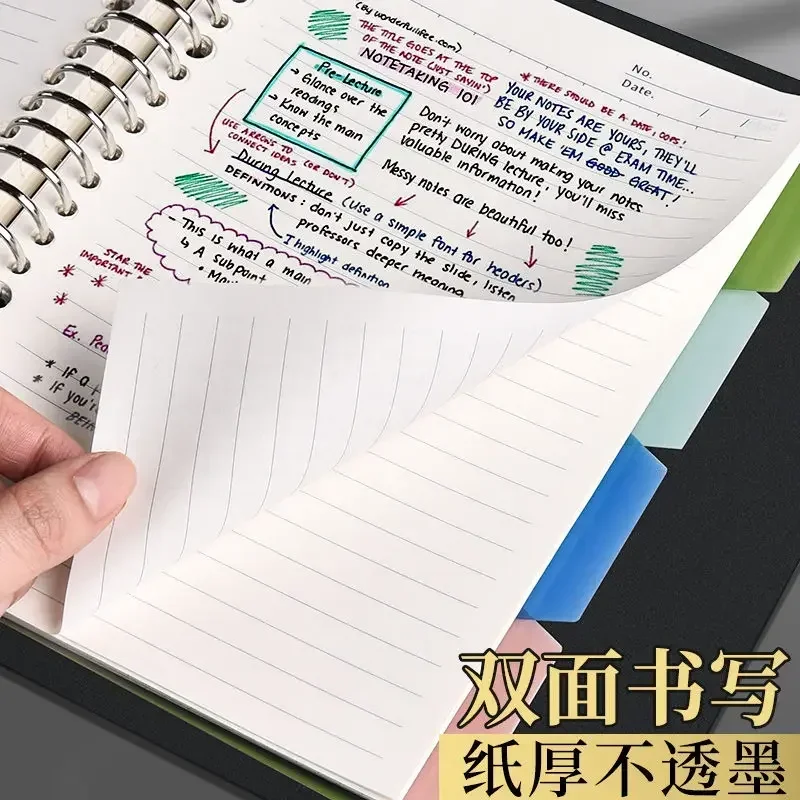 (By wonderfulifee.com)
THE TITLE GOES AT THE TOP
OF THE NOTE (JUST SAYIN')
NOTETAKING 101
No.
Date. / /
* THERE SHOULD BE A DATE, OOPS!
Pre-Lecture
→ Glance over the
readings
→ Know the main
concepts
YOUR NOTES ARE YOURS, THEY'LL
BE BY YOUR SIDE @ EXAM TIME...
SO MAKE 'EM GOOD GREAT!
Don't worry about making your notes
pretty DURING lecture, you'll miss
valuable information!
Messy notes are beautiful too!
USE ARROWS TO
CONNECT IDEAS (OR DON'T)
During Lecture (Use a simple font for headers)
DEFINITIONS: don't just copy the slide, listen
professors deeper meaning
I highlight definition
- This is what a main
↳ A subpoint
STAR THE
IMPORTANT
* *
*
Ex.
* IF a
* IF you're
双面书写
纸厚不透墨